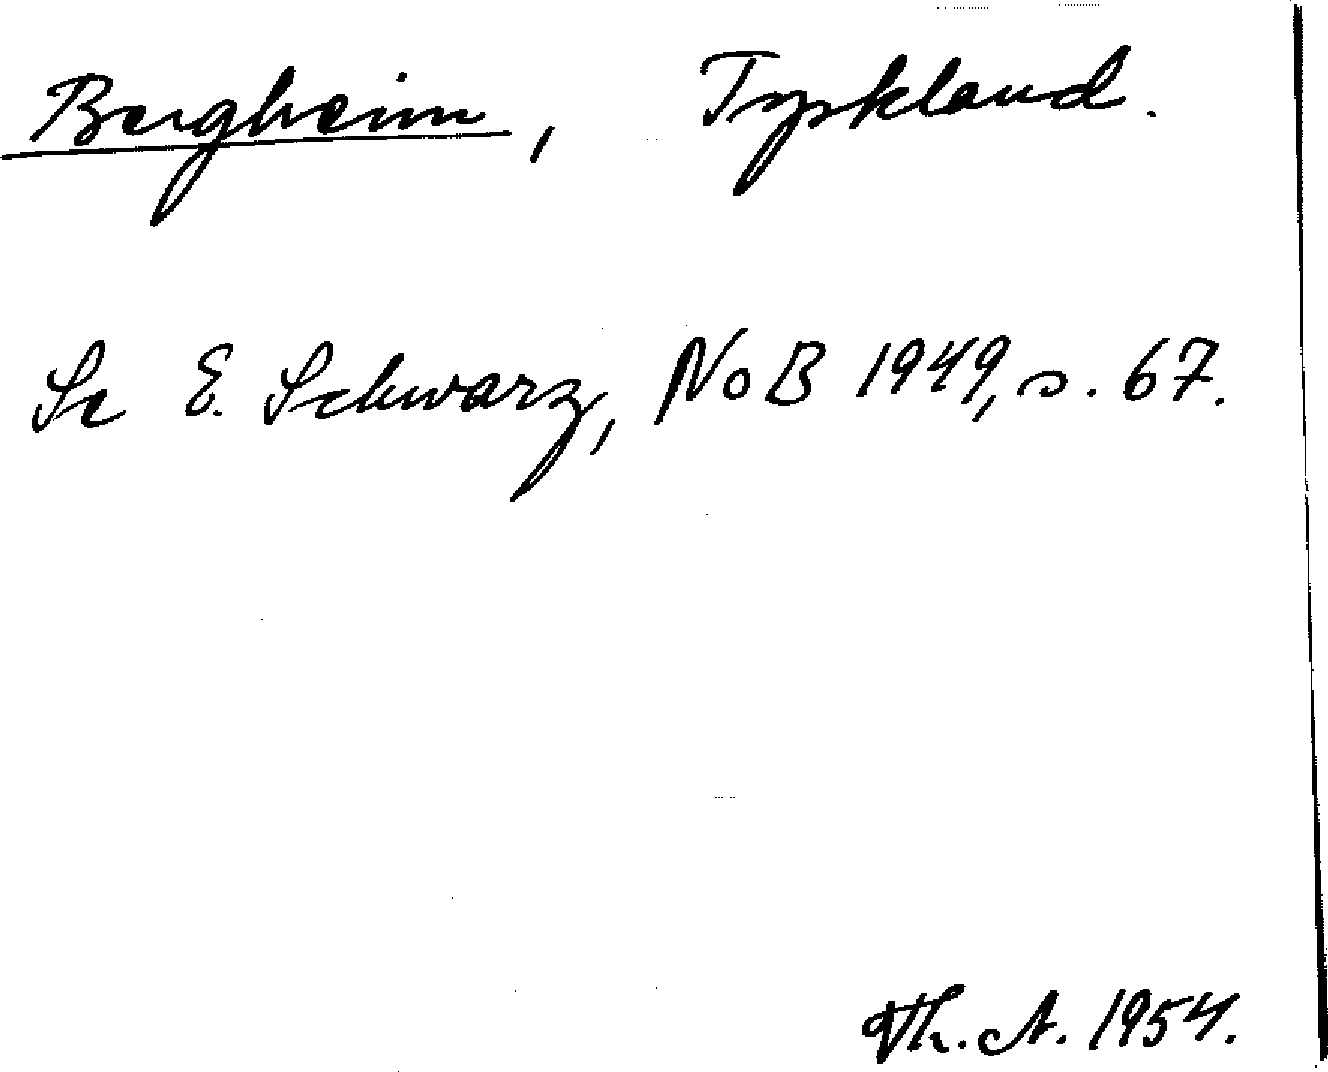 Bergheim, Tyskland.
Se E. Schwarz, NoB 1949, s. 67.
Th. A. 1954.